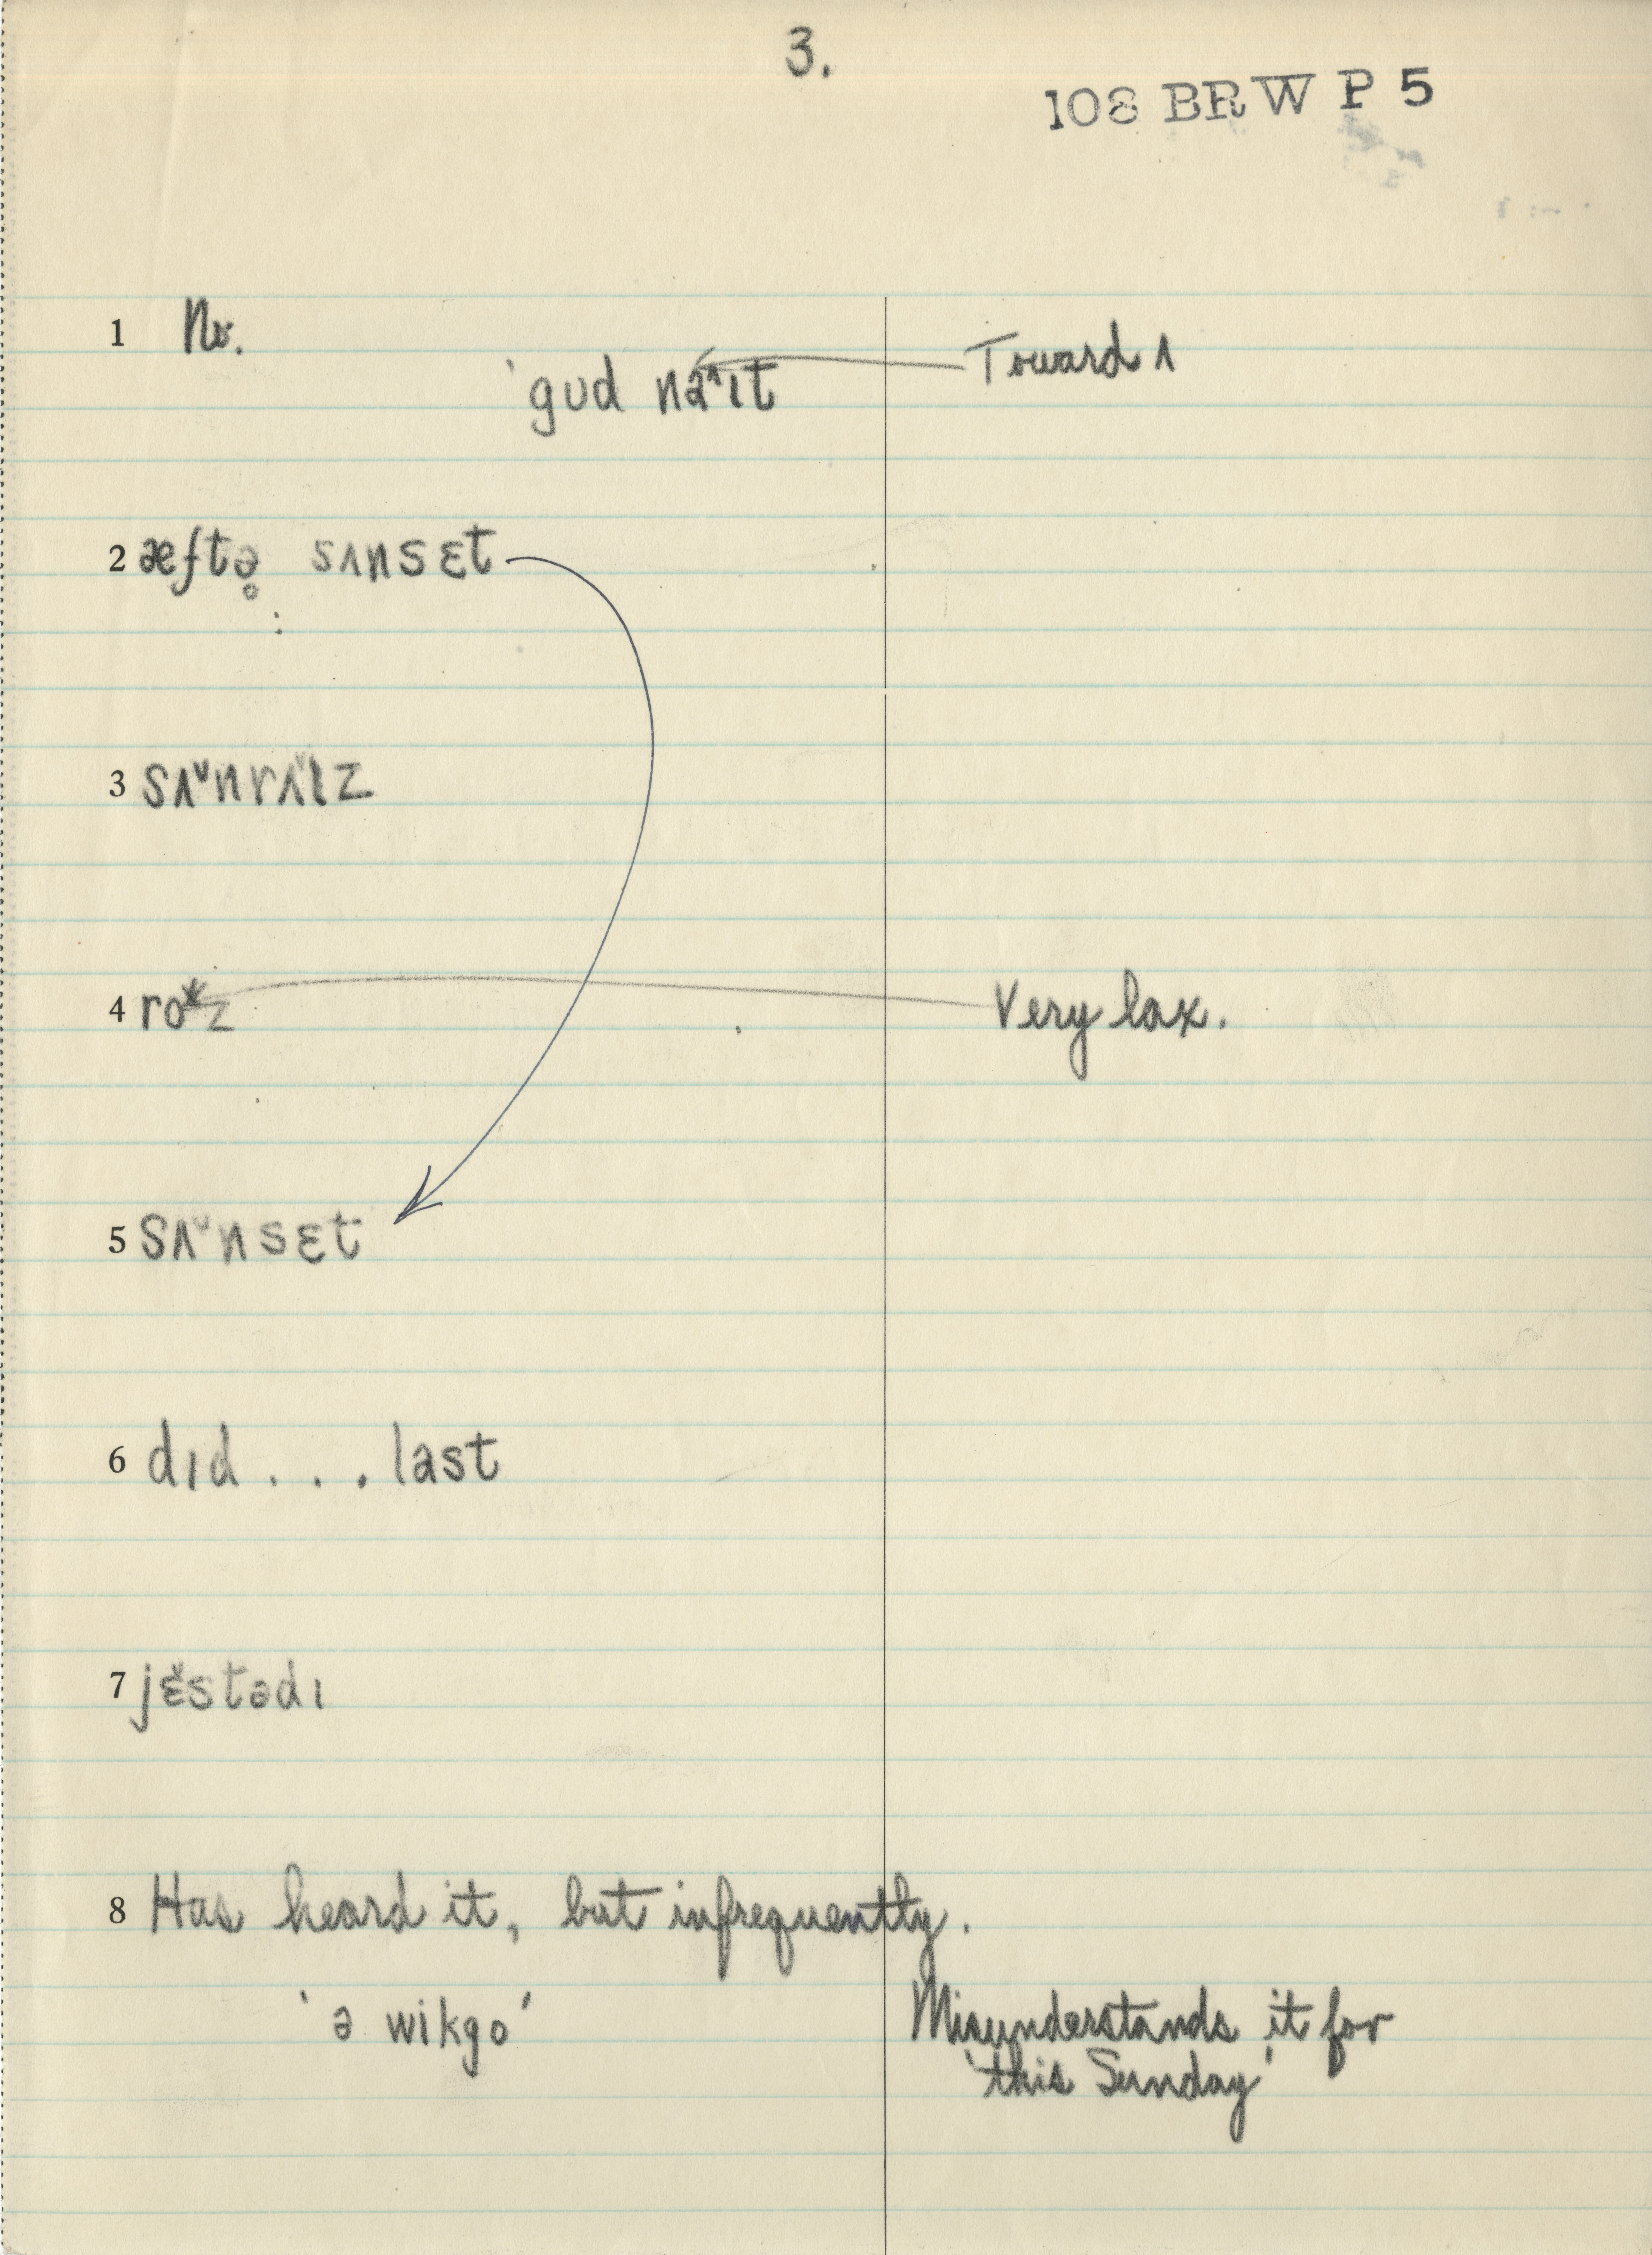 3.
108 BRW P 5
1 No.
'gud na^ɪt Toward ʌ
2 æftə̥ sʌnsɛt
3 sʌ˅nrʌ˅ɪz
4 ro z Very lax.
5 sʌ˅nsɛt
6 dɪd . . . last
7 jɛ˅stədɪ
8 Has heard it, but infrequently.
'ə wikgo' Misunderstands it for
'this Sunday'